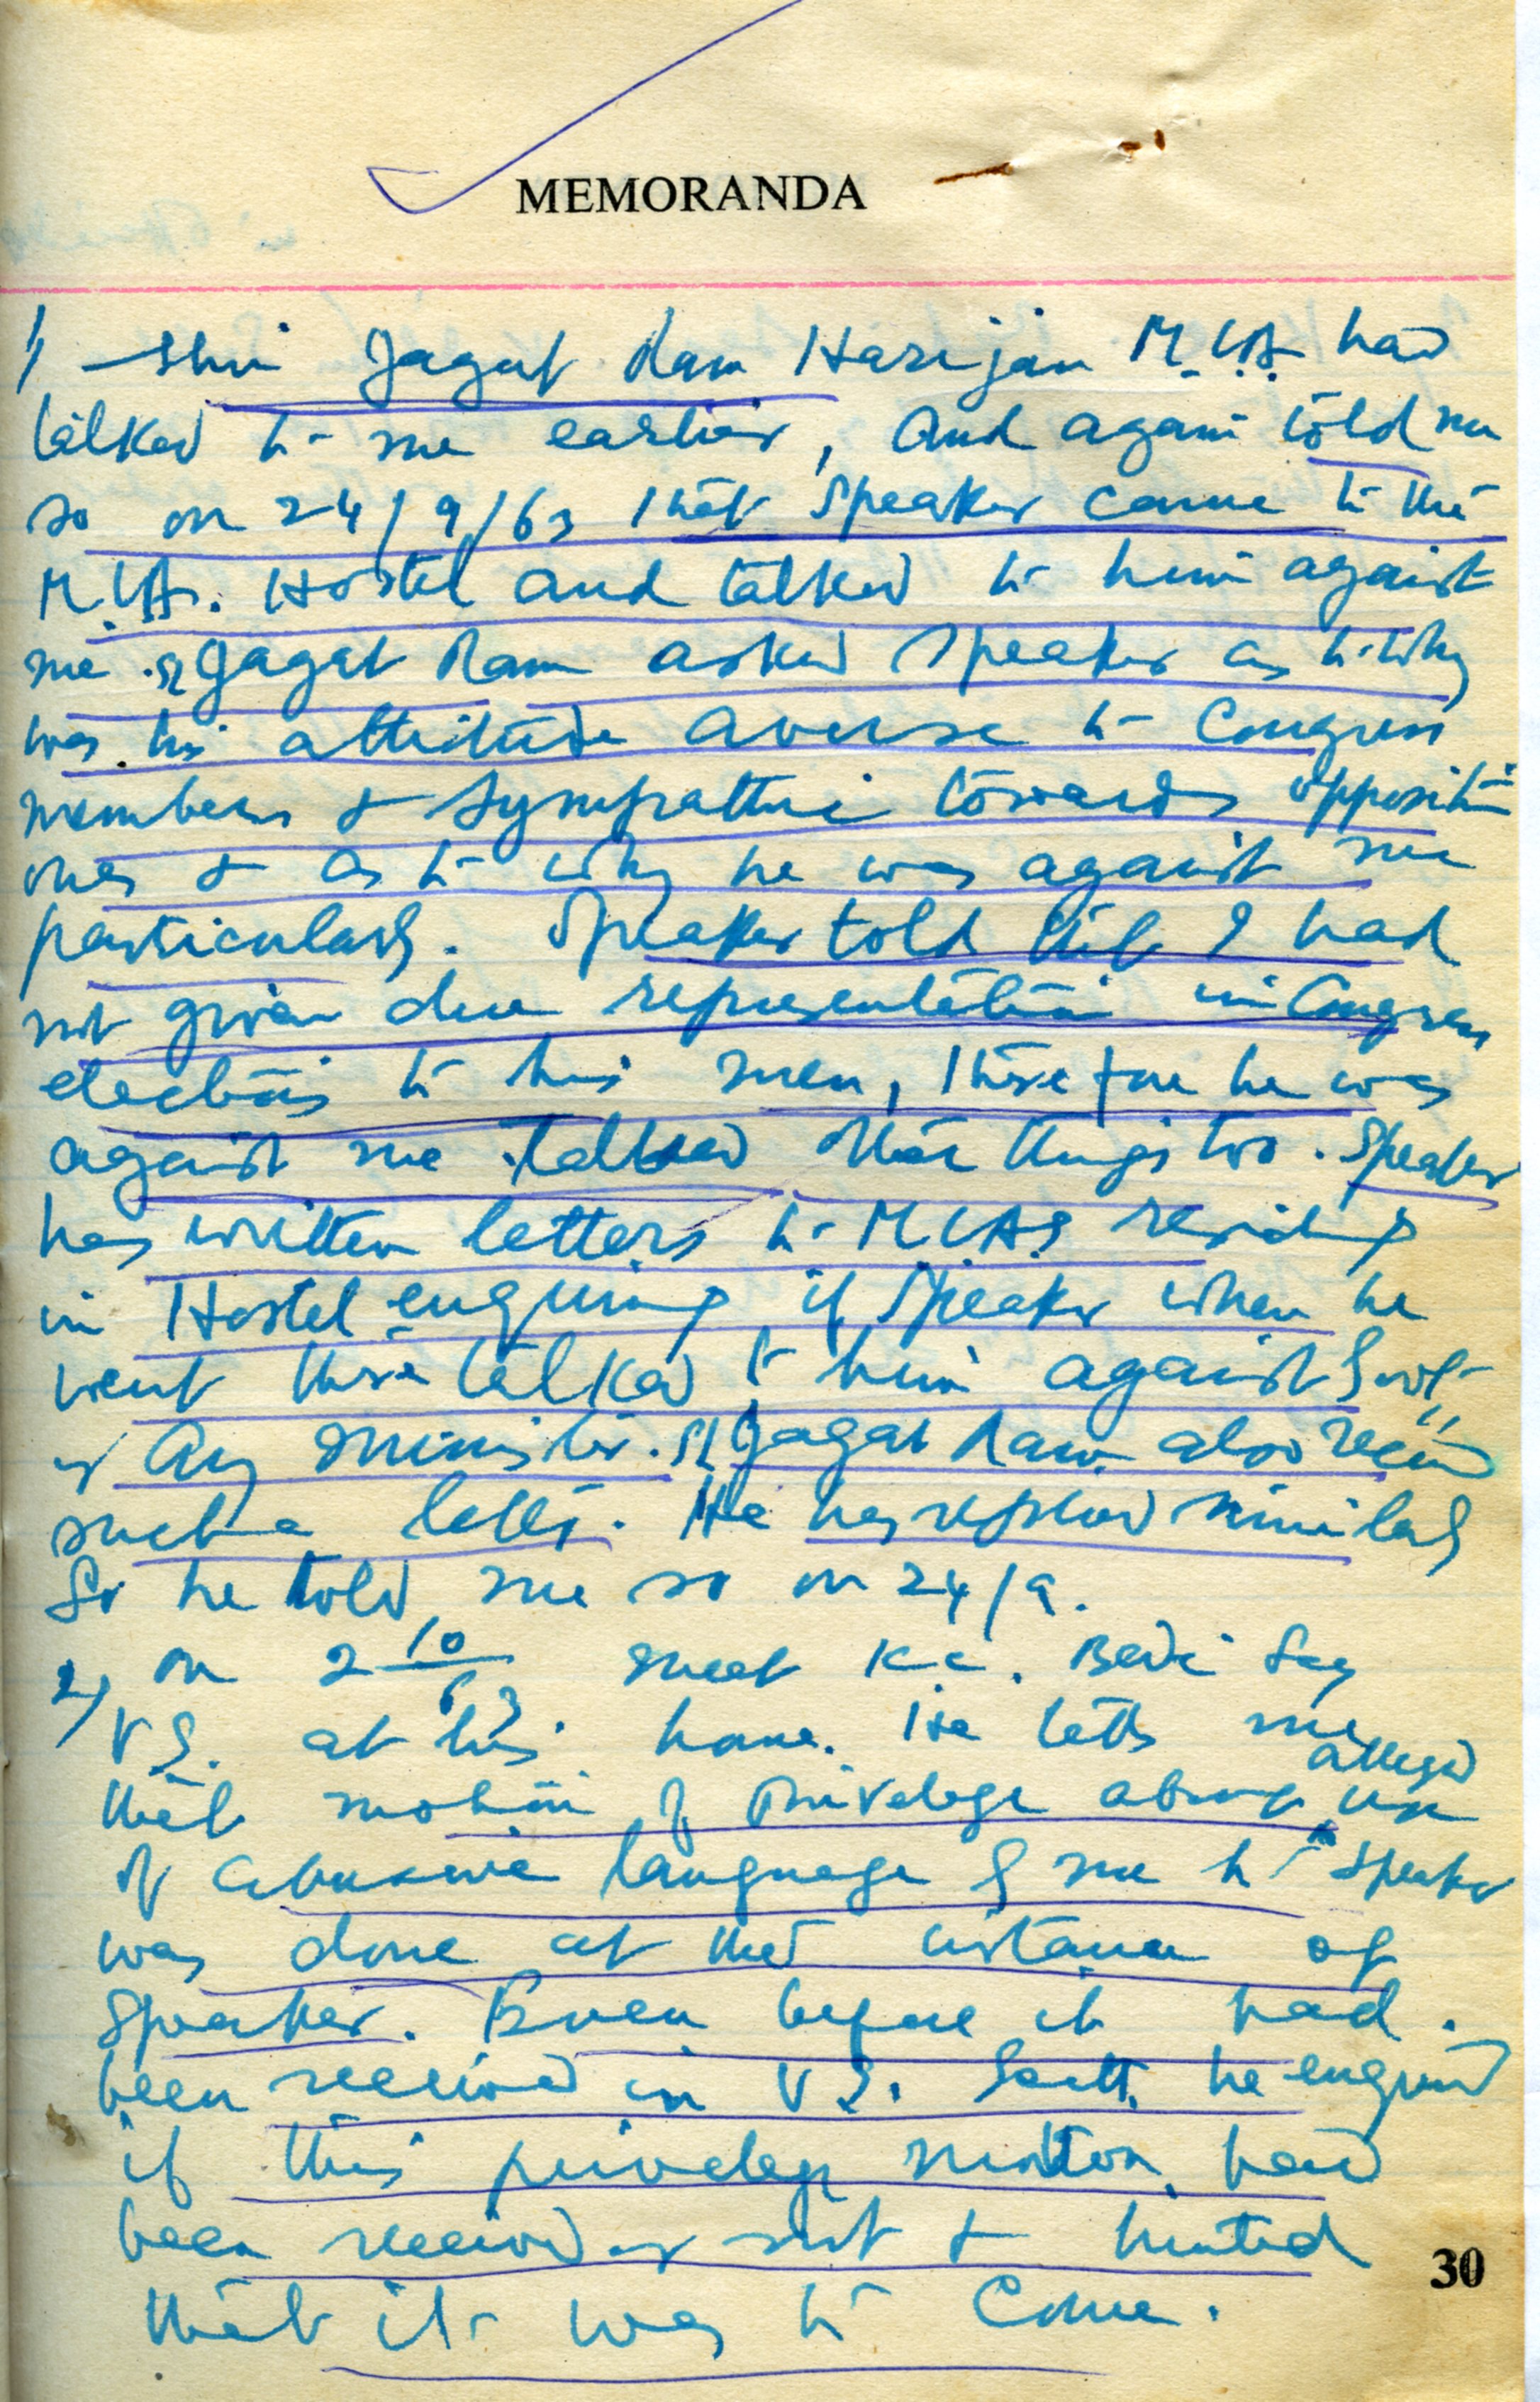 MEMORANDA
1) Shri Jagat Ram Harijan M.L.A. had
talked to me earlier, and again told me
so on 24/9/63 that Speaker came to the
M.L.A. Hostel and talked to him against
me. Jagat Ram asked Speaker as to why
was his attitude averse to Congress
members & sympathic towards opposition
ones & as to why he was against me
particularly. Speaker told that I had
not given due representation in Congress
elections to his men, therefore he was
against me. Talked other things too. Speaker
has written letters to M.L.A.s residing
in Hostel enquiring if Speaker when he
went there talked to him against Govt.
or any minister. Jagat Ram also recd
such a letter. He has replied similarly
So he told me so on 24/9.
2) On 2 10/63 meet K.C. Bedi Secy
V.S. at his home. He tells me
that motion of Privelege about alleged use
of abusive language by me to Speaker
was done at the instance of
Speaker. Even before it had
been received in V.S. Sectt. he enquired
if this privelege motion had
been received or not & hinted
that it was to come.
30